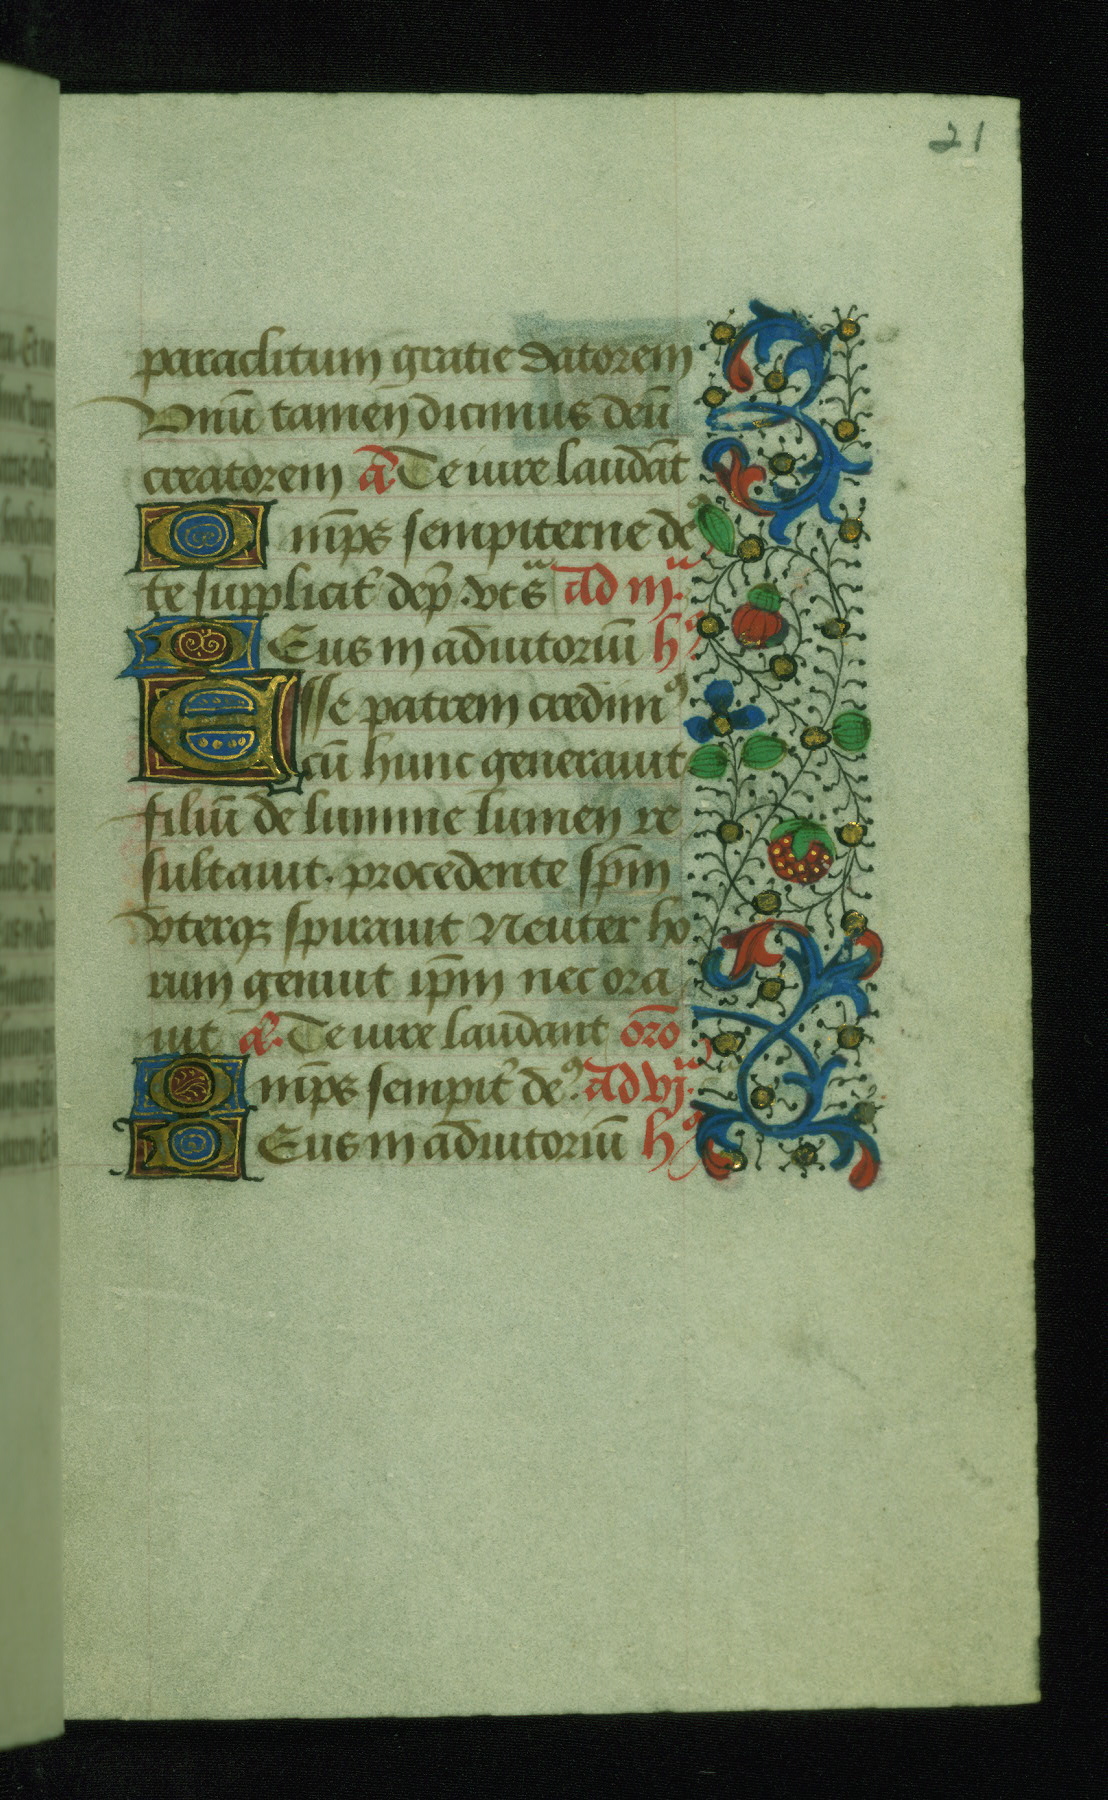 21
paraclitum gratie datorem
Vnū tamen dicimus deū
creatorem a̅. Te iure laudāt
O mīps sempiterne de⁹
te supplicit̾ dep̄. vt sᵃ Ad iijᵃ.
D Eus in adiutoriū h⁹
E sse patrem credim⁹
cū hunc generauit
filiū de lumine lumen re
sultauit. procedente sp̄m
vterqꝫ spirauit Neuter ho
rum genuit ip̄m nec ora
uit a̅. Te iure laudant oro̅
O mīps sempit̾ de⁹. Ad vjᵃ.
D Eus in adiutoriū h⁹